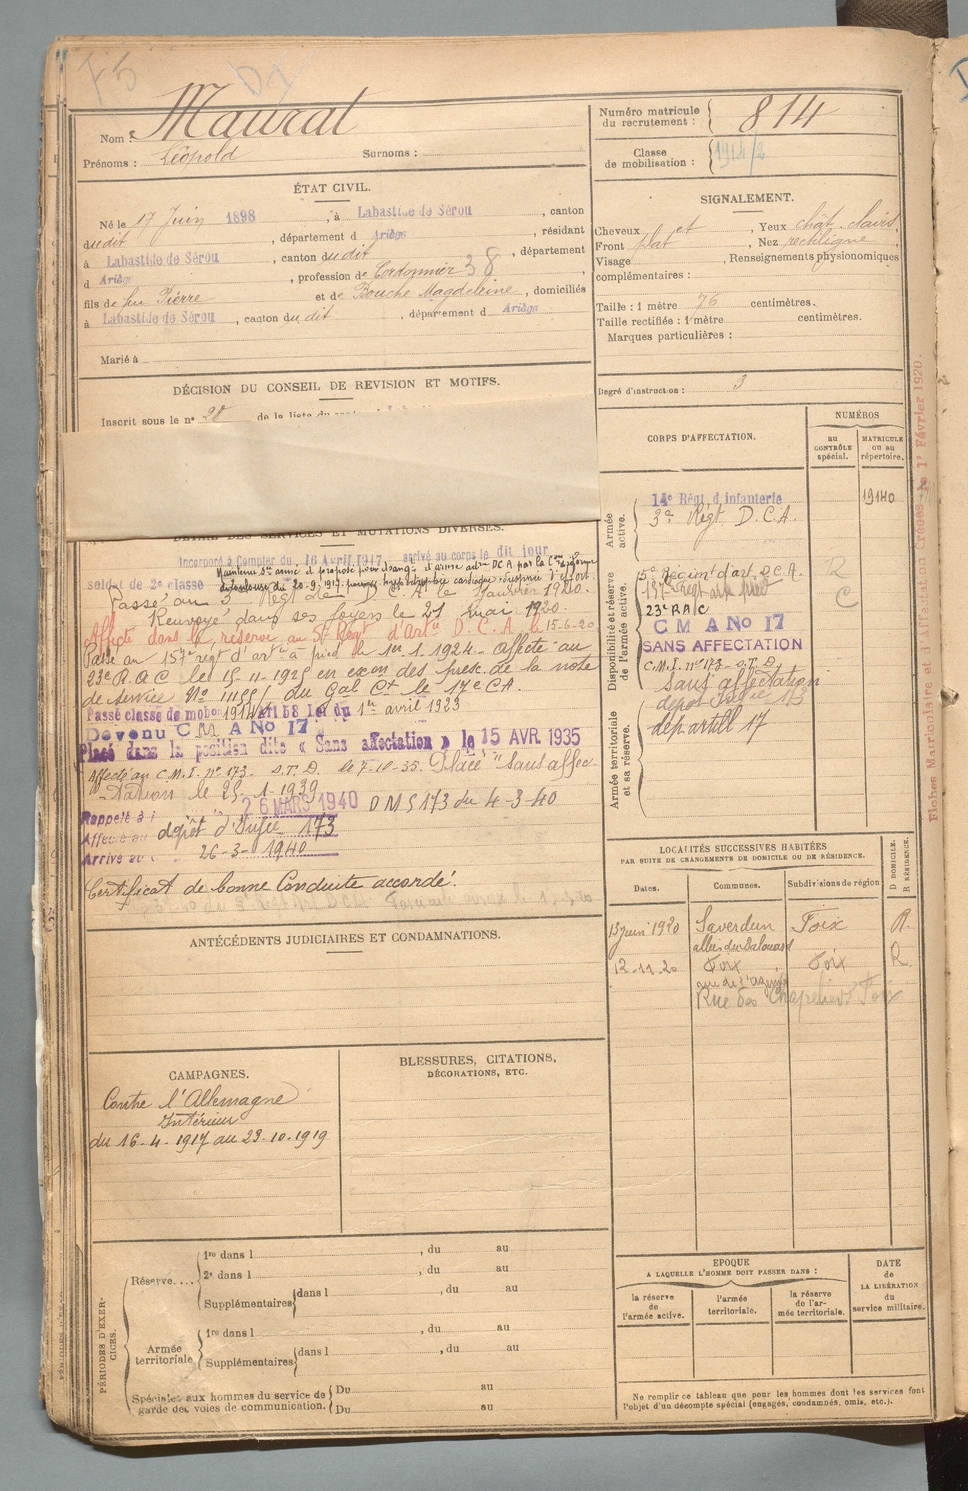 F5
DI
Nom : Maurat
Prénoms : Léopold Surnoms :
Numéro matricule du recrutement : 814
Classe de mobilisation : 1914/2
ÉTAT CIVIL.
Né le 17 Juin 1898, à Labastide de Sérou, canton
dudit, département d Ariège, résidant
à Labastide de Sérou, canton dudit, département
d Ariège, profession de Cordonnier 38,
fils de feu Pierre et de Bouche Magdeleine, domiciliés
à Labastide de Sérou, canton du dit, département d Ariège
Marié à
SIGNALEMENT.
Cheveux et, Yeux chât. clairs,
Front plat, Nez rectiligne,
Visage, Renseignements physionomiques
complémentaires :
Taille : 1 mètre 76 centimètres.
Taille rectifiée : 1 mètre centimètres.
Marques particulières :
Degré d'instruction : 3
DÉCISION DU CONSEIL DE REVISION ET MOTIFS.
Inscrit sous le n° 28 de la liste du
DÉTAIL DES SERVICES ET MUTATIONS DIVERSES.
Incorporé à Compter du 16 Avril 1917, arrivé au corps le dit jour
soldat de 2e classe Maintenu Sce armé et proposé pour changt d'arme DCA par la Con
de Toulouse du 20-9-1917 hypertrophie cardiaque
Passé au 3e Régt de D C A le Janvier 1920.
Renvoyé dans ses foyers le 27 mai 1920.
Affecté dans la réserve au 5e Régt d'Artie D.C.A. le 15-6-20
Passé au 157e régt d'artie à pied le 1er 1 1924 - affecté au
23e R.A.C le 15-11-1925 en exon des presc. de la note
de service No du Gal Ct le 17e CA.
Passé classe de mobon 1914 Art 58 Loi du 1er avril 1923
Devenu C M A No 17
Placé dans la position dite « Sans affectation » le 15 AVR. 1935
Affecté au C.M.I. n° 173 - S.T.D. le 7-10-35. Placé "Sans affec-
tation le 25-1-1939
Rappelé à l 26 MARS 1940 D M S 173 du 4-3-40
Affecté au dépôt d'Infie 173
Arrivé au c 26-3-1940
Certificat de bonne Conduite accordé.
CORPS D'AFFECTATION.
NUMÉROS
au CONTRÔLE spécial.
MATRICULE ou au répertoire.
Armée active.
14e Régt d'infanterie 19140
3e Régt D.C.A.
Disponibilité et réserve de l'armée active.
5e Régimt d'art. D.C.A. R
157e Régt art. à pied C
23e R A C
C M A No 17
SANS AFFECTATION
C.M.I. n° 173 - S.T.D.
Sans affectation
dépôt Infie 173
Armée territoriale et sa réserve.
dép artill 17
Fiches Matriculaire et d'Affectation dressées le 1er Février 1920.
LOCALITÉS SUCCESSIVES HABITÉES
PAR SUITE DE CHANGEMENTS DE DOMICILE OU DE RÉSIDENCE.
Dates. Communes. Subdivisions de région D DOMICILE. R RÉSIDENCE.
13 Juin 1920 Saverdun Foix R.
12-11-20 Foix Foix R.
Rue des Chapeliers Foix
ANTÉCÉDENTS JUDICIAIRES ET CONDAMNATIONS.
CAMPAGNES.
Contre l'Allemagne
Intérieur
du 16-4-1917 au 23-10-1919
BLESSURES, CITATIONS,
DÉCORATIONS, ETC.
PÉRIODES D'EXERCICES.
Réserve....
1re dans l, du au
2e dans l, du au
Supplémentaires dans l, du au
Armée territoriale
1re dans l, du au
Supplémentaires dans l, du au
Spéciales aux hommes du service de garde des voies de communication.
Du au
Du au
EPOQUE
A LAQUELLE L'HOMME DOIT PASSER DANS :
la réserve de l'armée active.
l'armée territoriale.
la réserve de l'armée territoriale.
DATE de LA LIBÉRATION du service militaire.
Ne remplir ce tableau que pour les hommes dont les services font
l'objet d'un décompte spécial (engagés, condamnés, omis, etc.).